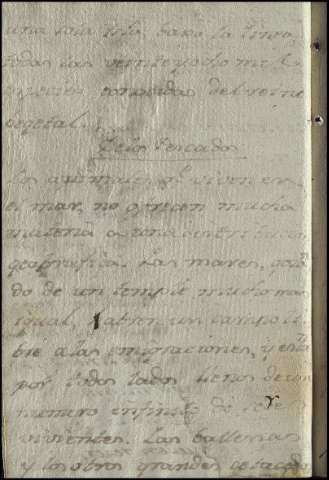 una sola isla, baxo la linea,
todas las veinte y ocho mil es
pecies conocidas del reino
vegetal.
De los Pescados
Los animales ql. viven en
el mar, no ofrecen mucha
materia a una distribucion
geografica. Las mares, goza
do de un temple mucho mas
igual, abren un campo li
bre a las emigraciones, y está
por todos lados llenos de un
numero infinito de seres
vivientes. Las ballenas
y los otros grandes cetaceos